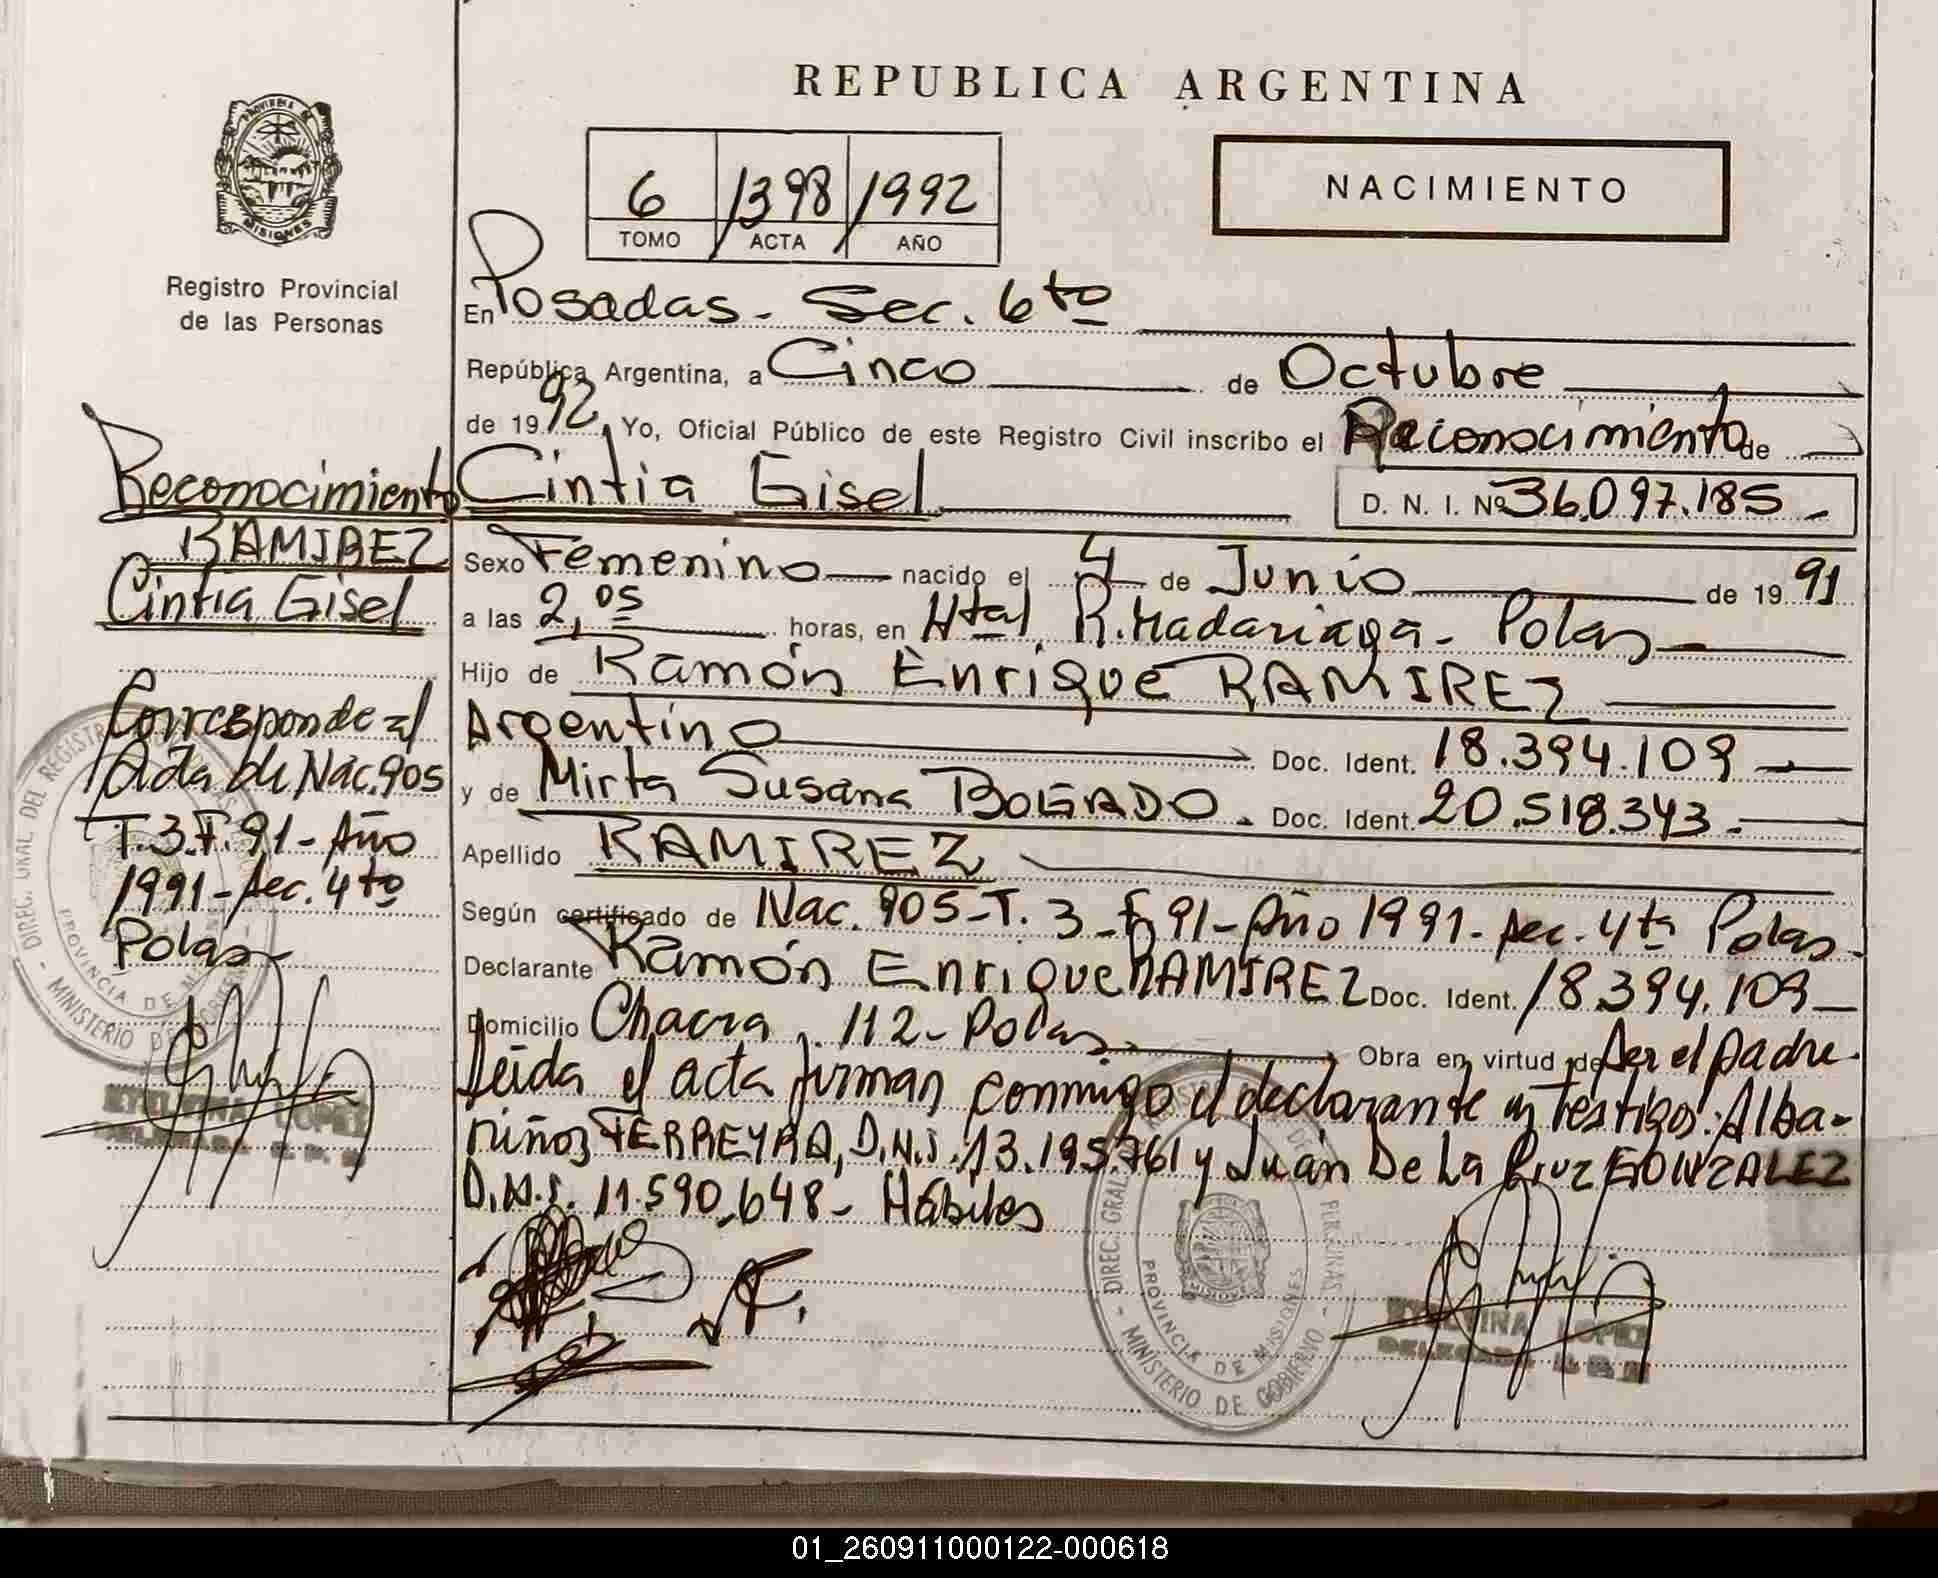 REPUBLICA ARGENTINA
NACIMIENTO
6 1398 1992
TOMO ACTA AÑO
PROVINCIA
MISIONES
Registro Provincial
de las Personas
En Posadas - Sec. 6to
República Argentina, a Cinco de Octubre
de 1992, Yo, Oficial Público de este Registro Civil inscribo el Reconocimiento de
Cintia Gisel D. N. I. Nº 36.097.185 -
Sexo Femenino nacido el 4 de Junio de 1991
a las 2,05 horas, en Htal R. Madariaga - Pdas
Hijo de Ramón Enrique RAMIREZ
Argentino Doc. Ident. 18.394.109
y de Mirta Susana BOGADO - Doc. Ident. 20.518.343 -
Apellido RAMIREZ
Según certificado de Nac. 905 - T. 3 - F. 91 - Año 1991 - Sec. 4ta Pdas -
Declarante Ramón Enrique RAMIREZ Doc. Ident. 18.394.109
Domicilio Chacra 112 - Pdas. Obra en virtud de Ser el padre -
Leida el acta firman conmigo el declarante testigos: Alba
FERREYRA, D.N.I. 13.195.761 y Juán De La Cruz GONZALEZ
D.N.I. 11.590.648 - Hábiles
Reconocimiento
RAMIREZ
Cintia Gisel
Corresponde al
Acta de Nac. 905
T. 3. F. 91 - Año
1991 - Sec. 4to
Pdas
DIREC. GRAL. DEL REGISTRO
MINISTERIO DE GOBIERNO
PROVINCIA DE
LOPEZ
DELEGADA
DIREC. GRAL.
PERSONAS
PROVINCIA DE MISIONES
MINISTERIO DE GOBIERNO
LOPEZ
DELEGADA
01_260911000122-000618